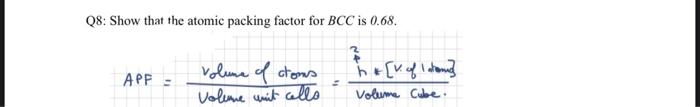 Q8: Show that the atomic packing factor for BCC is 0.68.
2
APF = Volume of atoms / Volume unit cells = n * [V. of 1 atom] / Volume Cube.